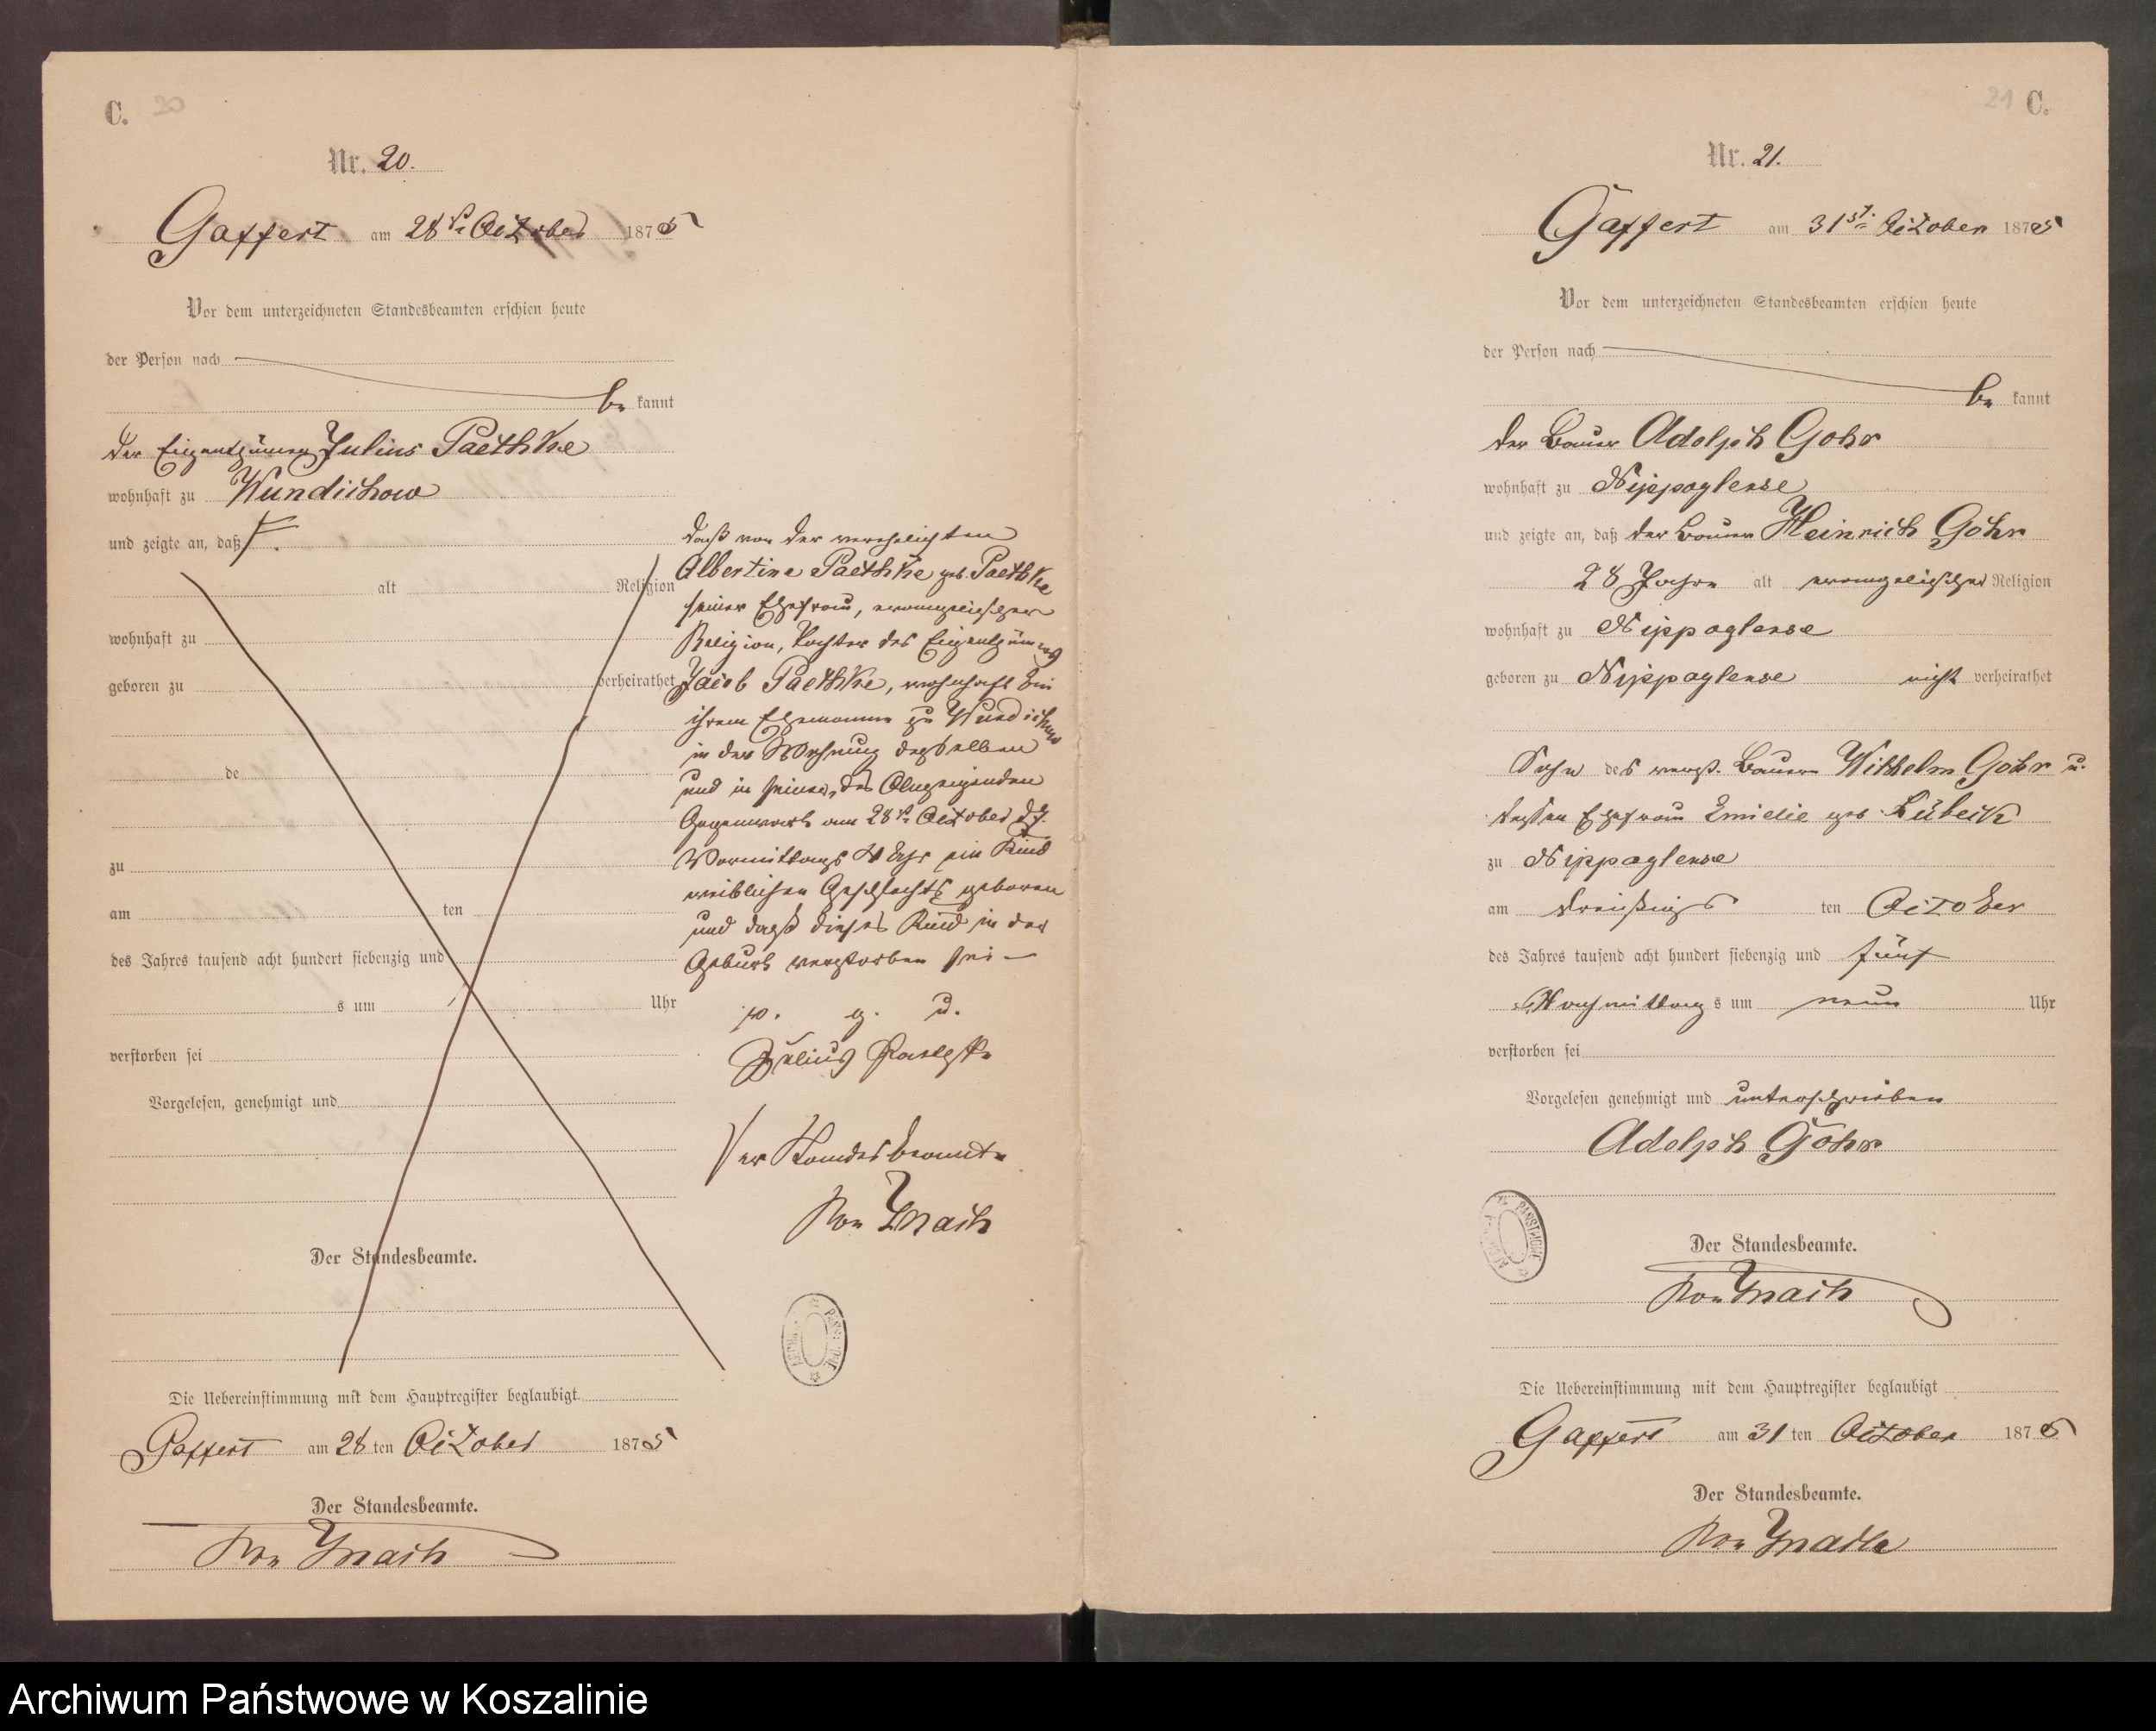 C. 20
Nr. 20.
Gaffert am 28t. October 1875
Vor dem unterzeichneten Standesbeamten erschien heute
der Person nach
be kannt
der Eigenthümer Julius Paethke
wohnhaft zu Wundichow
und zeigte an, daß
alt Religion
wohnhaft zu
geboren zu verheirathet
de
zu
am ten
des Jahres tausend acht hundert siebenzig und
s um Uhr
verstorben sei
Vorgelesen, genehmigt und
Der Standesbeamte.
daß von der verehelichten
Albertine Paethke geb. Paethke
seiner Ehefrau, evangelischer
Religion, Tochter des Eigenthümers
Jacob Paethke, wohnhaft bei
ihrem Ehemanne zu Wundichow
in der Wohnung desselben
und in seiner, des Anzeigenden
Gegenwart am 28t. October d. J.
Vormittags 4 Uhr ein Kind
weiblichen Geschlechts geboren
und daß dieses Kind in der
Geburt verstorben sei
v. g. u.
Julius Paethke
Der Standesbeamte
von
Die Uebereinstimmung mit dem Hauptregister beglaubigt
Gaffert am 28 ten October 1875
Der Standesbeamte.
von
21 C.
Nr. 21.
Gaffert am 31st. October 1875
Vor dem unterzeichneten Standesbeamten erschien heute
der Person nach
be kannt
der Bauer Adolph Gohr
wohnhaft zu Nippoglense
und zeigte an, daß der Bauer Heinrich Gohr
28 Jahre alt evangelischer Religion
wohnhaft zu Nippoglense
geboren zu Nippoglense nicht verheirathet
Sohn des verst. Bauern Wilhelm Gohr u.
dessen Ehefrau Emielie geb. Lübeck
zu Nippoglense
am dreißigs ten October
des Jahres tausend acht hundert siebenzig und fünf
Nachmittag s um neun Uhr
verstorben sei
Vorgelesen genehmigt und unterschrieben
Adolph Gohr
Der Standesbeamte.
von
Die Uebereinstimmung mit dem Hauptregister beglaubigt
Gaffert am 31 ten October 1875
Der Standesbeamte.
von
Archiwum Państwowe w Koszalinie